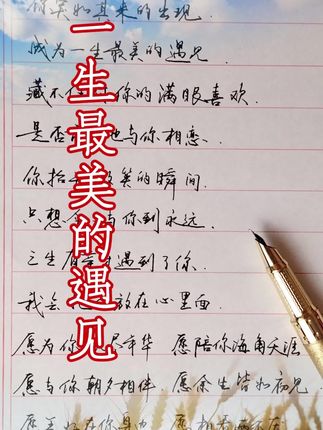 一生最美的遇见
你突如其来的出现.
成为一生最美的遇见.
藏不 你的满眼喜欢.
是否 地与你相恋.
你抬 笑的瞬间
只想 与你到永远.
三生有 遇到了你.
我会 放在心里面.
愿为你 尽年华 愿陪你海角天涯
愿与你朝夕相伴. 愿余生皆如初见.
愿美好在你身 愿相看两不厌